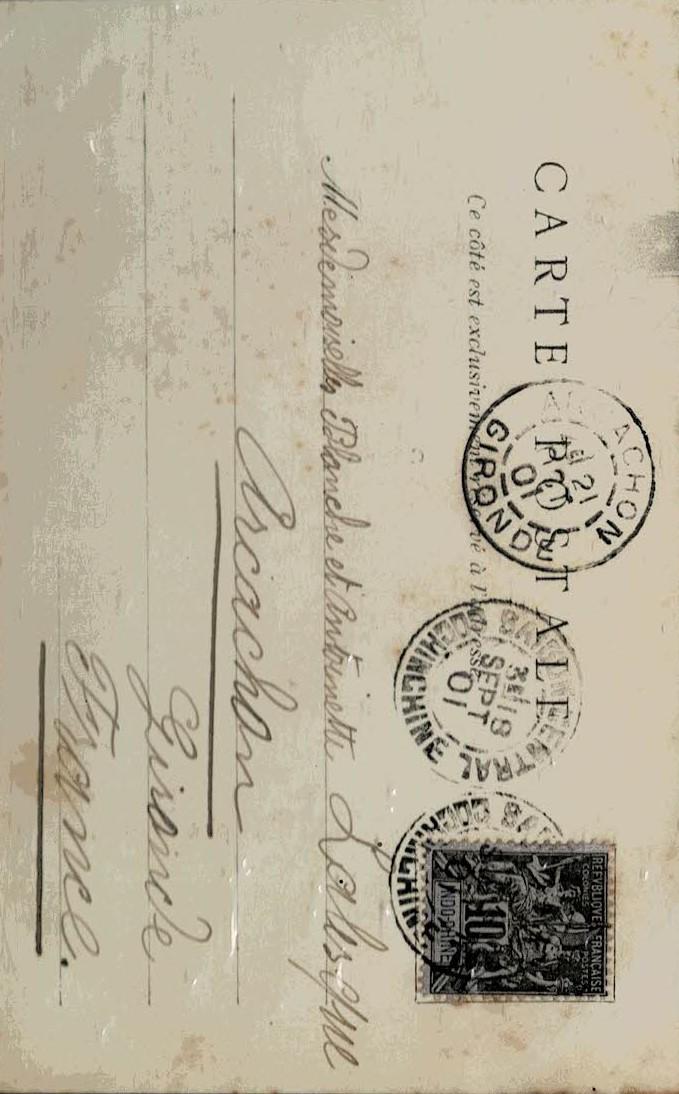 CARTE POSTALE
Ce côté est exclusivement réservé à l'adresse
ARCACHON
21
01
GIRONDE
SAIGON CENTRAL
18
SEPT
01
COCHINCHINE
REPUBLIQUE FRANÇAISE
COLONIES
POSTES
10
INDO-CHINE
Mesdemoiselles Blanche et Antoinette
Arcachon
Gironde
France.